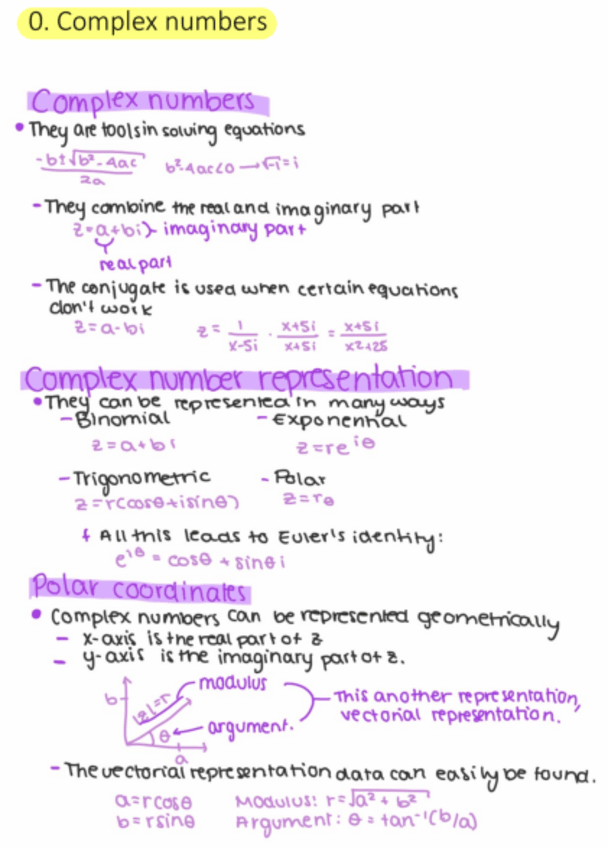 0. Complex numbers
Complex numbers
• They are tools in solving equations
-b±√b²-4ac / 2a    b²-4ac<0 → √-1=i
- They combine the real and imaginary part
z=a+bi} imaginary part
real part
- The conjugate is used when certain equations
don't work
z=a-bi    z = 1/x-5i · x+5i/x+5i = x+5i/x²+25
Complex number representation
• They can be represented in many ways
- Binomial    - Exponential
z=a+bi    z=re^iθ
- Trigonometric    - Polar
z=r(cosθ+isinθ)    z=rθ
All this leads to Euler's identity:
e^iθ = cosθ + sinθi
Polar coordinates
• Complex numbers can be represented geometrically
- x-axis is the real part of z
- y-axis is the imaginary part of z.
modulus
b    |z|=r    This another representation,
vectorial representation.
θ    argument.
a
- The vectorial representation data can easily be found.
a=rcosθ    Modulus: r=√a²+b²
b=rsinθ    Argument: θ=tan⁻¹(b/a)